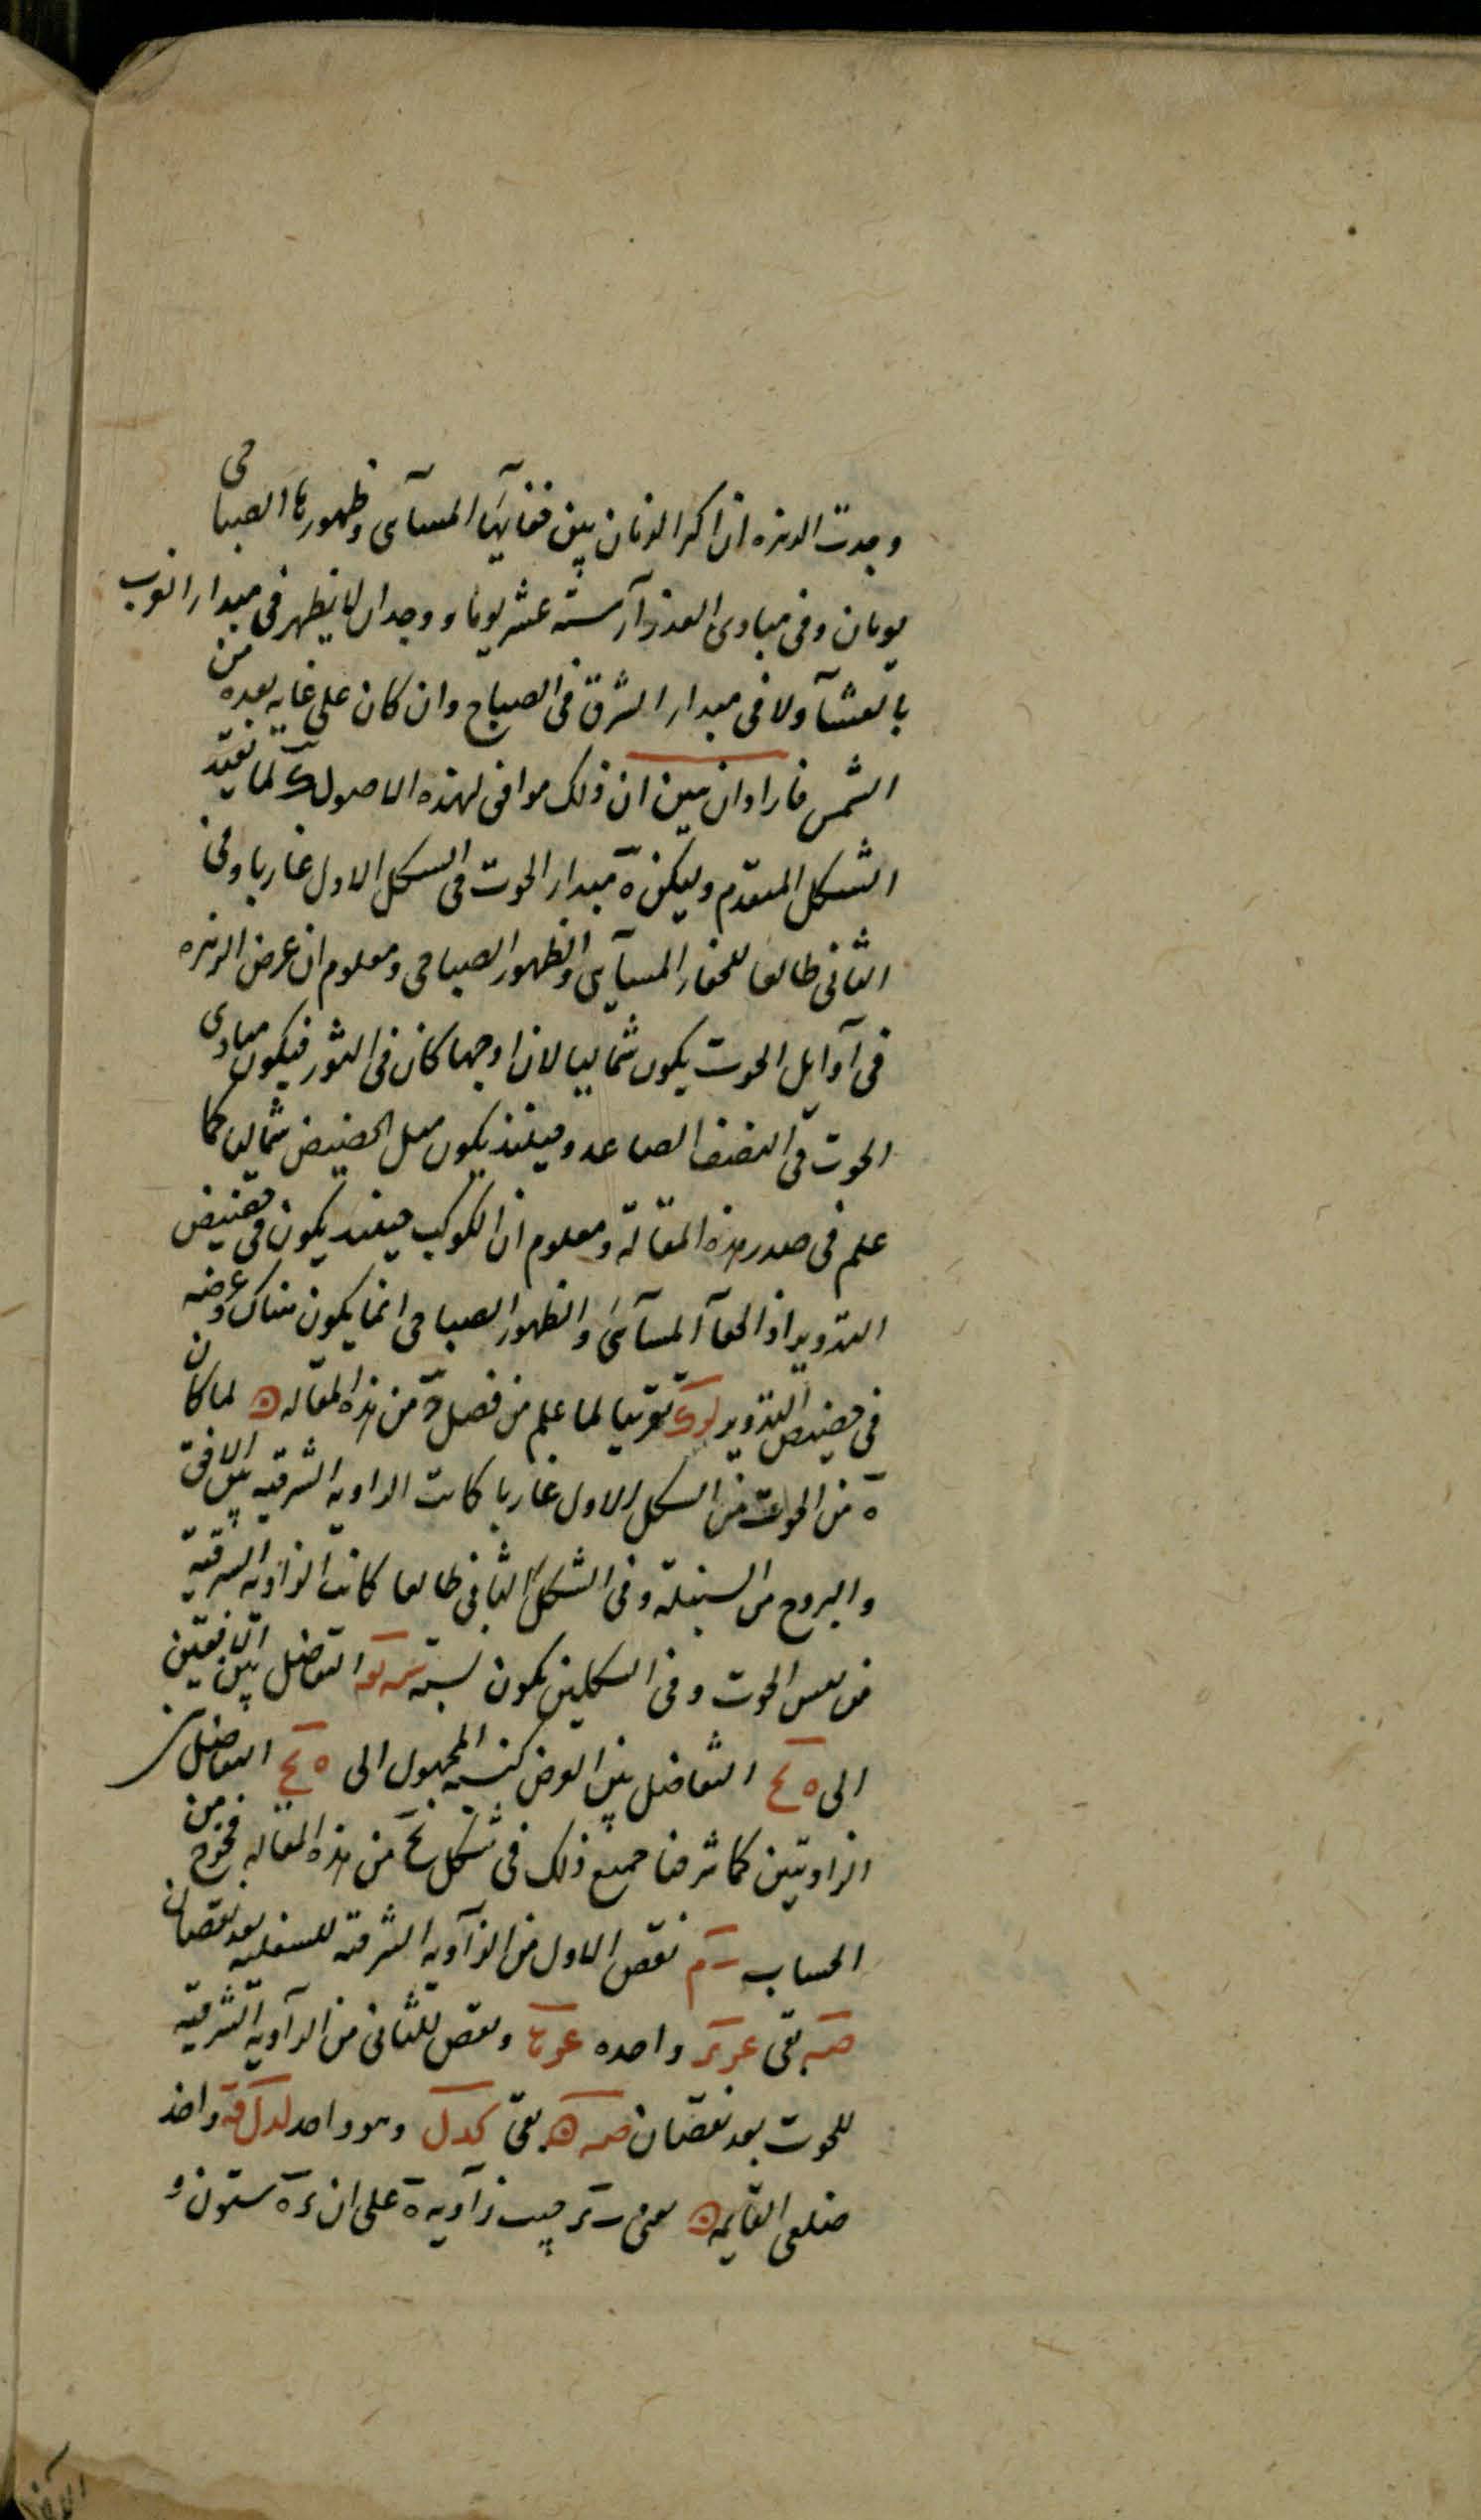 وجدت الزهره ان اكثر الزمان بين خفايها المسآى وظهورها الصباحى
يومان وفى مبادى العذرآ ستة عشر يوما ووجد ان لا يظهر فى مبدا العقرب
بالعشآ ولا فى مبدا الثور فى الصباح وان كان على غاية بعده من
الشمس فاراد ان يبين ان ذلك موافق لهذه الاصول لما نعيد
الشكل المتقدم وليكن ه مبدا الحوت فى الشكل الاول غاربا وفى
الثانى طالعا للخفا المسآى والظهور الصباحى ومعلوم ان عرض الزهره
فى اوايل الحوت يكون شماليا لان اوجها كان فى الثور فيكون مبادى
الحوت فى النصف الصاعد وحينئذ يكون ميل الحضيض شماليا كما
علم فى صدر هذه المقالة ومعلوم ان الكوكب حينئذ يكون فى حضيض
التدوير اذ الخفآ المسآى والظهور الصباحى انما يكون هناك وعرضه
فى حضيض التدوير تقريبا لما علم من فصل من هذه المقاله لما كان
ه من الحوت من الشكل الاول غاربا كانت الزاوية الشرقية بين الافق
والبروج من السنبلة وفى الشكل الثانى طالعا كانت الزاوية الشرقية
من الحوت وفى الشكلين يكون نسبة التفاضل بين
الى ه ح التفاضل بين العرض كنسبة المجهول الى ه ح التفاضل بين
الزاويتين كما شرحنا جميع ذلك فى شكل من هذه المقاله فخرج من
الحساب نقص الاول من الزاوية الشرقية للسنبلة بعد نقصان
صه بقى واحده ونقص للثانى من الزاوية الشرقية
للحوت بعد نقصان صه بقى كدل وهو واحد واحد
ضلعى القايمه جيب زاوية ه على ان ره ستون و